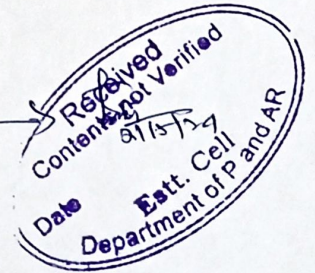 Received
Contents not Verified
21/5/24
Date
Estt. Cell
Department of P and AR